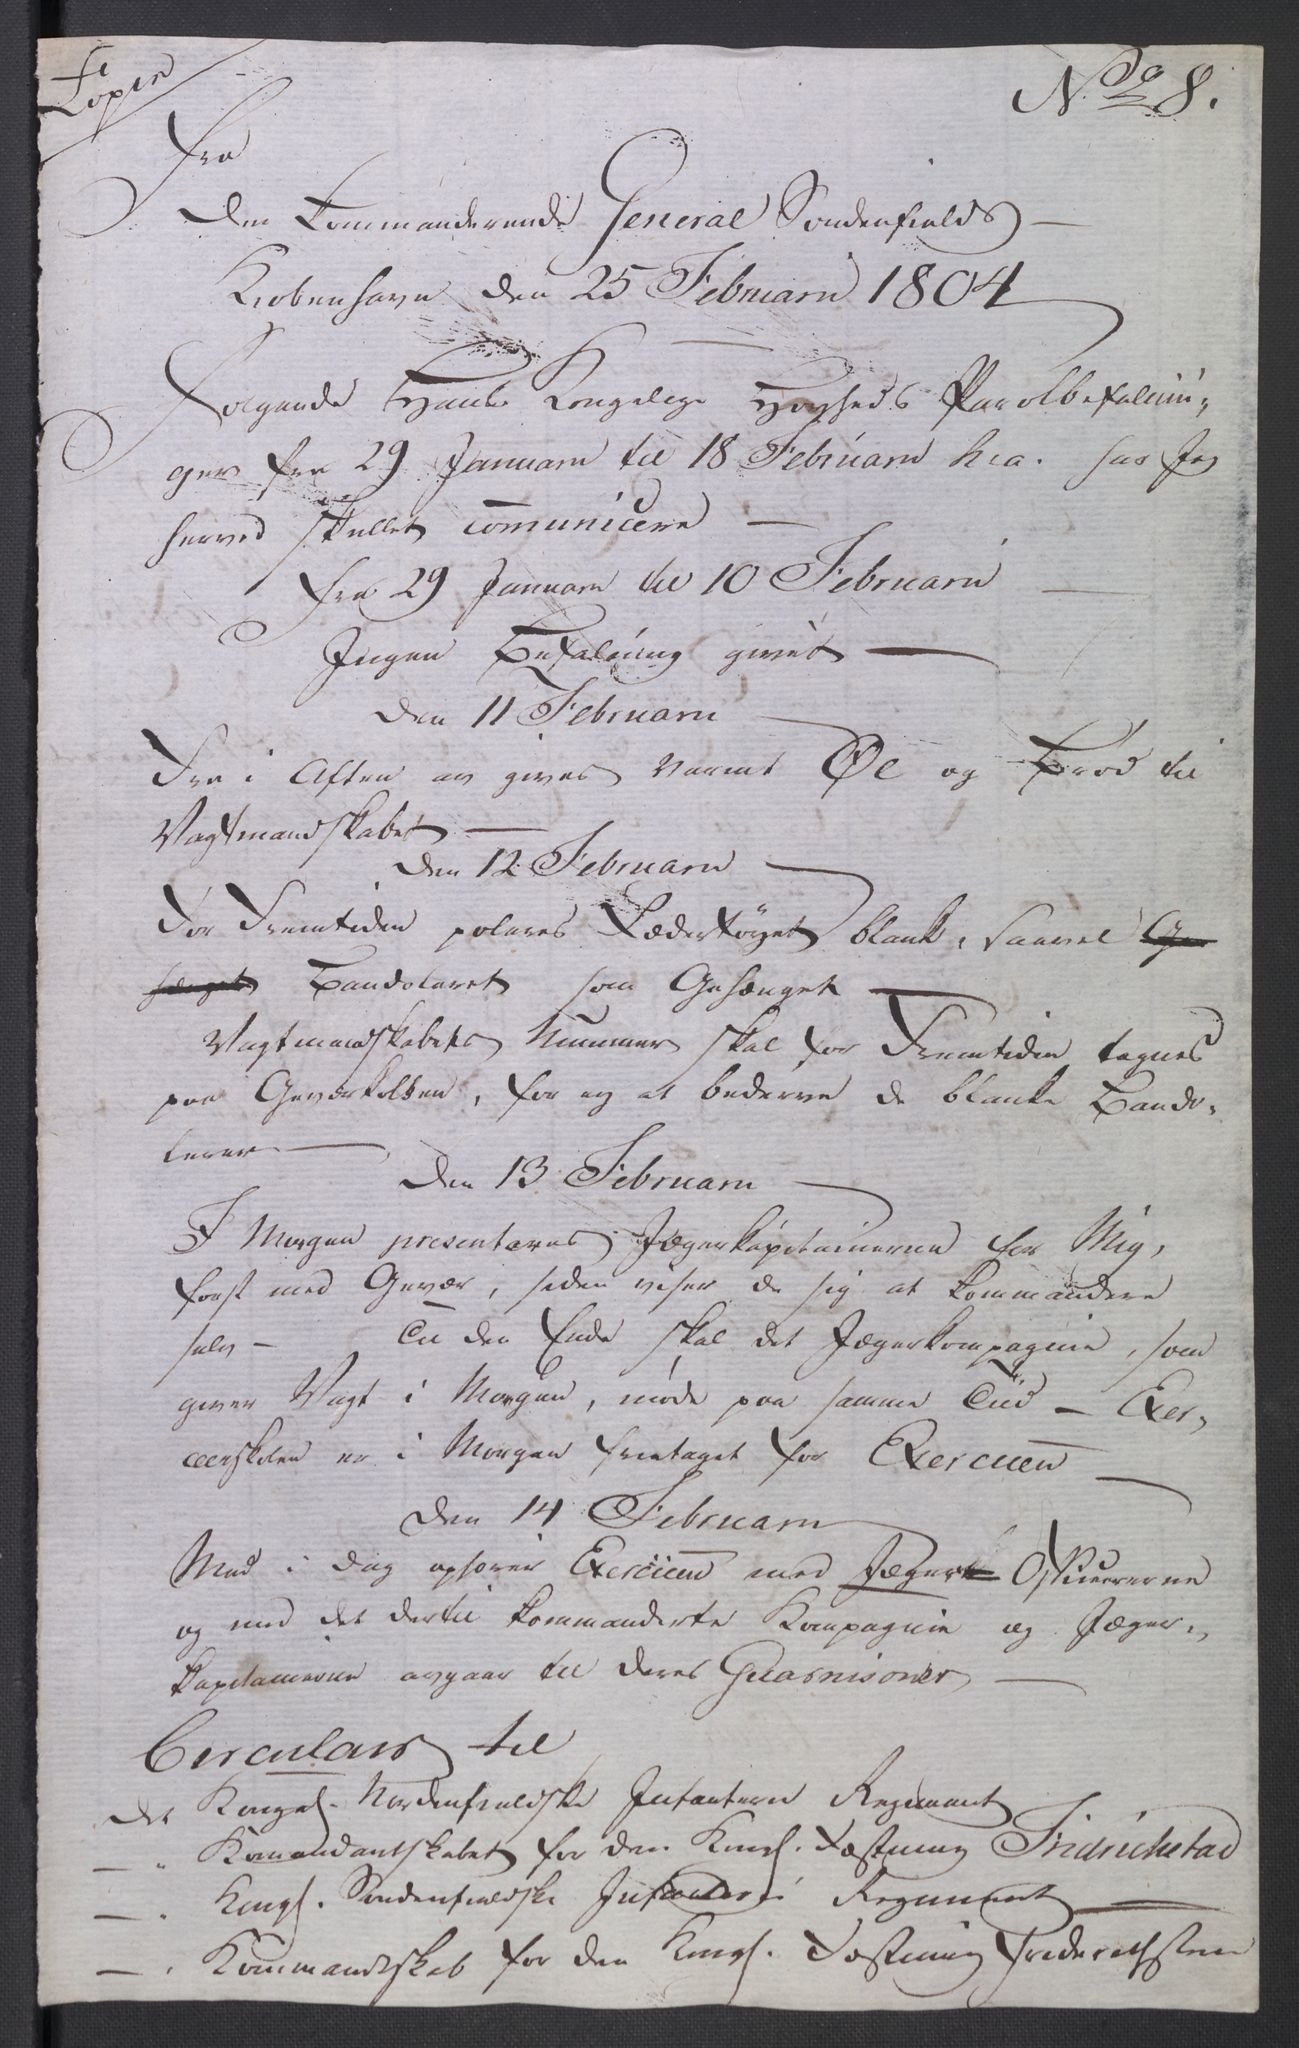 Copie
No 8.
Fra
den Commanderende General Søndenfields
Kiøbenhavn den 25 Februarii 1804
Følgende Hans Kongelige Høyheds Parolbefalin-
ger fra 29 Januarii til 18 Februarii h: a. har Jeg
herved skullet communicere
Fra 29 Januarii til 10 Februarii
Ingen Befalning givet
den 11 Februarii
Fra i Aften av gives varmt Øl og Brød til
Vagtmandskabet
den 12 Februarii
For Fremtiden poleres Lædertøyet blank, saavel Ge-
hænget Bandoleret som Gehænget
Vagtmandskabets Nummer skal for Fremtiden tegnes
paa Geværkolben, for ey at bederve de blanke Bando-
lerer
den 13 Februarii
I Morgen presenteres Jægerkapitainerne for Mig,
først med Gevær, siden viser de sig at kommandere
selv - Til den Ende skal det Jægerkompagnie, som
giver Vagt i Morgen, møde paa samme Tiid - Exer-
ceerskolen er i Morgen fritaget for Exercice
den 14 Februarii
Med i Dag ophører Exercice med Jæger Officererne
og med det dertil kommanderte Kompagnie og Jæger-
kapitainerne avgaar til deres Guarnisoner
Circulair til
Det Kongel. Nordenfieldske Infanterie Regiment
— " Komandantskabet for den Kongl. Fæstning Fridrichstad
— " Kongl. Søndenfieldske Infanterie Regiment
— " Kommandtskab for den Kongl. Fæstning Frederichsteen